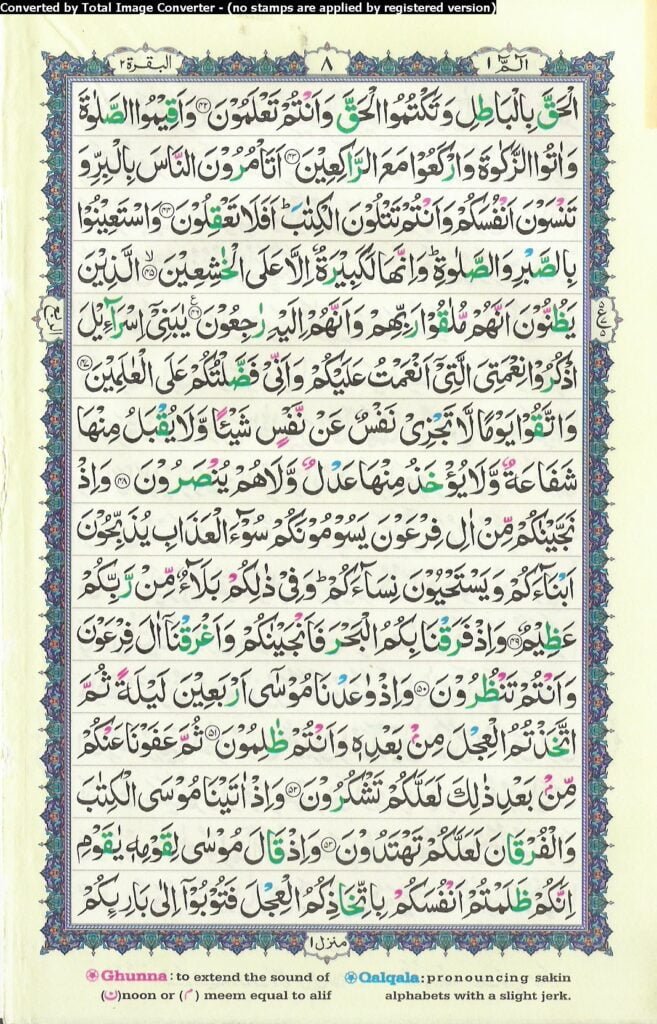 Converted by Total Image Converter - (no stamps are applied by registered version)
الٓمّٓ ١ ٨ البقرة ٢
الْحَقَّ بِالْبَاطِلِ وَتَكْتُمُوا الْحَقَّ وَاَنْتُمْ تَعْلَمُوْنَ ﴿۴۲﴾ وَاَقِيْمُوا الصَّلٰوةَ
وَاٰتُوا الزَّكٰوةَ وَارْكَعُوْا مَعَ الرّٰكِعِيْنَ ﴿۴۳﴾ اَتَاْمُرُوْنَ النَّاسَ بِالْبِرِّ وَ
تَنْسَوْنَ اَنْفُسَكُمْ وَاَنْتُمْ تَتْلُوْنَ الْكِتٰبَ ؕ اَفَلَا تَعْقِلُوْنَ ﴿۴۴﴾ وَاسْتَعِيْنُوْا
بِالصَّبْرِ وَالصَّلٰوةِ ؕ وَاِنَّهَا لَكَبِيْرَةٌ اِلَّا عَلَى الْخٰشِعِيْنَ ﴿۴۵﴾ۙ الَّذِيْنَ
يَظُنُّوْنَ اَنَّهُمْ مُّلٰقُوْا رَبِّهِمْ وَاَنَّهُمْ اِلَيْهِ رٰجِعُوْنَ ﴿۴۶﴾ يٰبَنِيْۤ اِسْرَآءِيْلَ
اذْكُرُوْا نِعْمَتِيَ الَّتِيْۤ اَنْعَمْتُ عَلَيْكُمْ وَاَنِّيْ فَضَّلْتُكُمْ عَلَى الْعٰلَمِيْنَ ﴿۴۷﴾
وَاتَّقُوْا يَوْمًا لَّا تَجْزِيْ نَفْسٌ عَنْ نَّفْسٍ شَيْـًٔا وَّلَا يُقْبَلُ مِنْهَا
شَفَاعَةٌ وَّلَا يُؤْخَذُ مِنْهَا عَدْلٌ وَّلَا هُمْ يُنْصَرُوْنَ ﴿۴۸﴾ وَاِذْ
نَجَّيْنٰكُمْ مِّنْ اٰلِ فِرْعَوْنَ يَسُوْمُوْنَكُمْ سُوْٓءَ الْعَذَابِ يُذَبِّحُوْنَ
اَبْنَآءَكُمْ وَيَسْتَحْيُوْنَ نِسَآءَكُمْ ؕ وَفِيْ ذٰلِكُمْ بَلَآءٌ مِّنْ رَّبِّكُمْ
عَظِيْمٌ ﴿۴۹﴾ وَاِذْ فَرَقْنَا بِكُمُ الْبَحْرَ فَاَنْجَيْنٰكُمْ وَاَغْرَقْنَاۤ اٰلَ فِرْعَوْنَ
وَاَنْتُمْ تَنْظُرُوْنَ ﴿۵۰﴾ وَاِذْ وٰعَدْنَا مُوْسٰۤى اَرْبَعِيْنَ لَيْلَةً ثُمَّ
اتَّخَذْتُمُ الْعِجْلَ مِنْۢ بَعْدِهٖ وَاَنْتُمْ ظٰلِمُوْنَ ﴿۵۱﴾ ثُمَّ عَفَوْنَا عَنْكُمْ
مِّنْۢ بَعْدِ ذٰلِكَ لَعَلَّكُمْ تَشْكُرُوْنَ ﴿۵۲﴾ وَاِذْ اٰتَيْنَا مُوْسَى الْكِتٰبَ
وَالْفُرْقَانَ لَعَلَّكُمْ تَهْتَدُوْنَ ﴿۵۳﴾ وَاِذْ قَالَ مُوْسٰى لِقَوْمِهٖ يٰقَوْمِ
اِنَّكُمْ ظَلَمْتُمْ اَنْفُسَكُمْ بِاتِّخَاذِكُمُ الْعِجْلَ فَتُوْبُوْۤا اِلٰى بَارِىِٕكُمْ
منزل ١
Ghunna: to extend the sound of Qalqala: pronouncing sakin
(ن)noon or (م) meem equal to alif alphabets with a slight jerk.